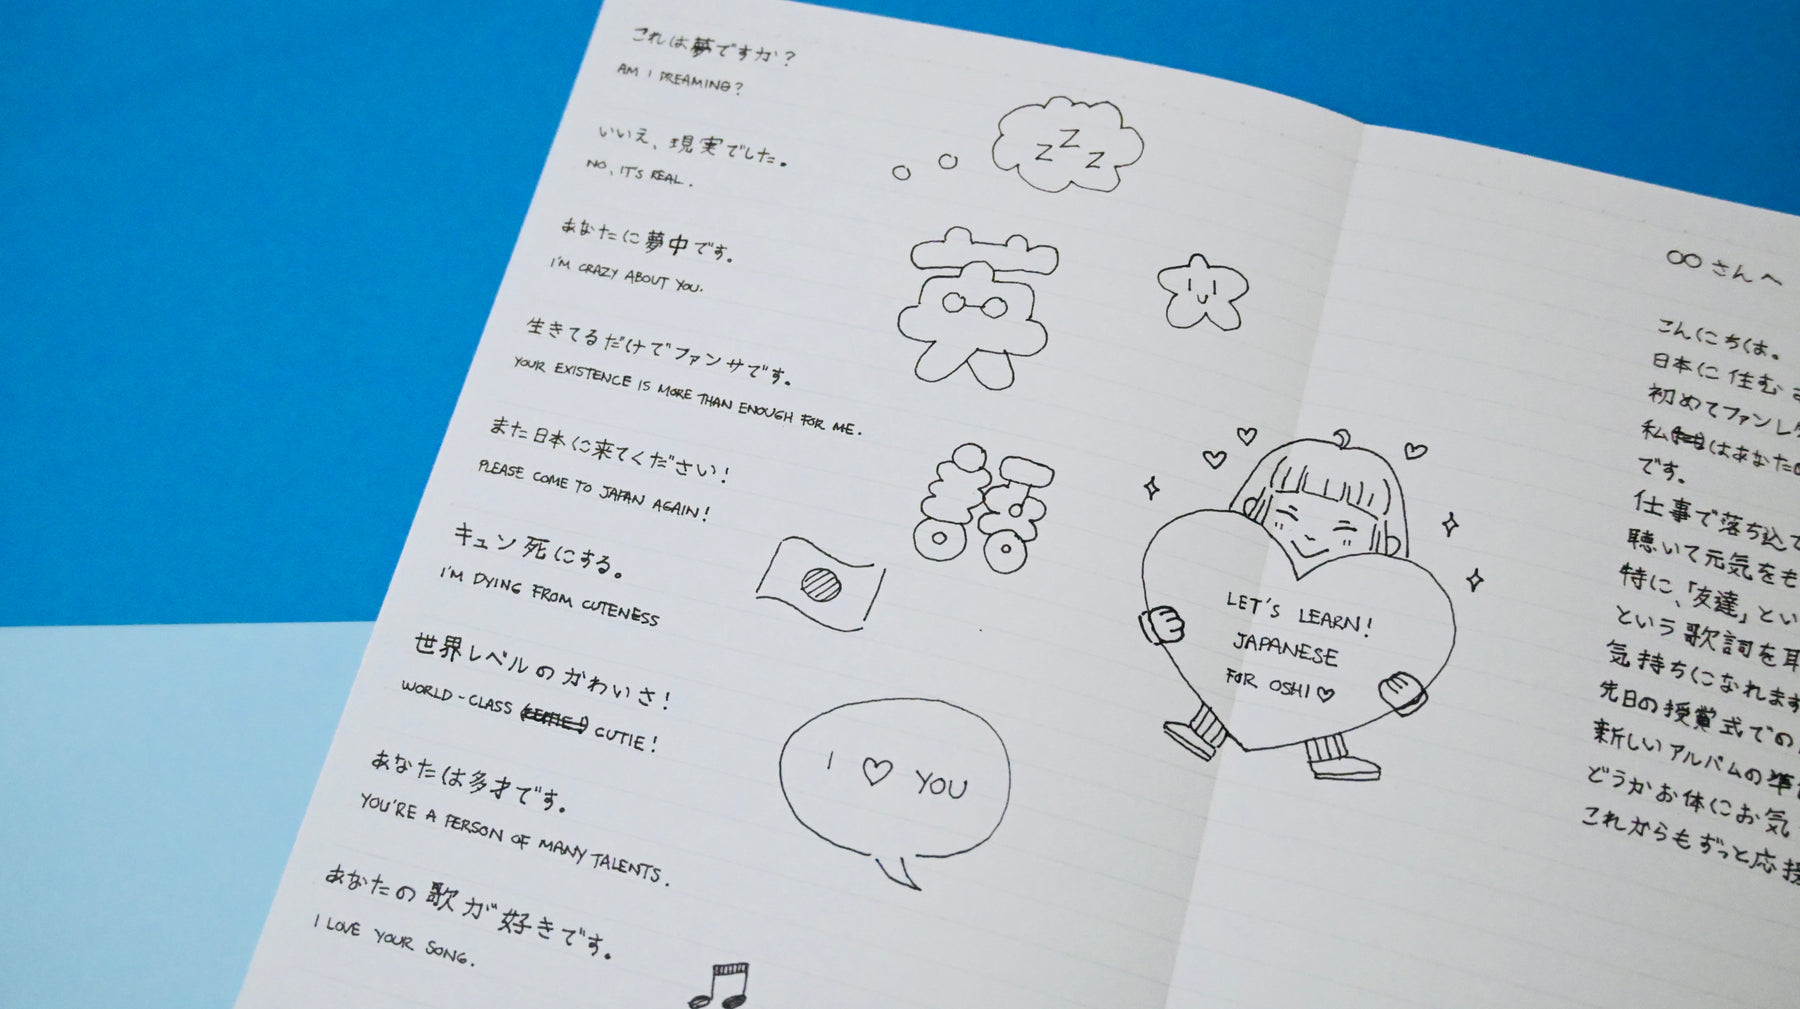 これは夢ですか?
AM I DREAMING?
いいえ、現実でした。
NO, IT'S REAL.
あなたに夢中です。
I'M CRAZY ABOUT YOU.
生きてるだけでファンサです。
YOUR EXISTENCE IS MORE THAN ENOUGH FOR ME.
また日本に来てください!
PLEASE COME TO JAPAN AGAIN!
キュン死にする。
I'M DYING FROM CUTENESS
世界レベルのかわいさ!
WORLD-CLASS CUTIE!
あなたは多才です。
YOU'RE A PERSON OF MANY TALENTS.
あなたの歌が好きです。
I LOVE YOUR SONG.
ZZZ
I ♡ YOU
LET'S LEARN!
JAPANESE
FOR OSHI♡
○○さんへ
こんにちは。
日本に住む
初めてファンレ
私はあなたの
です。
仕事で落ち込
聴いて元気をも
特に、「友達」とい
という歌詞を
気持ちになれます
先日の授賞式での
新しいアルバムの準
どうかお体にお気
これからもずっと応援